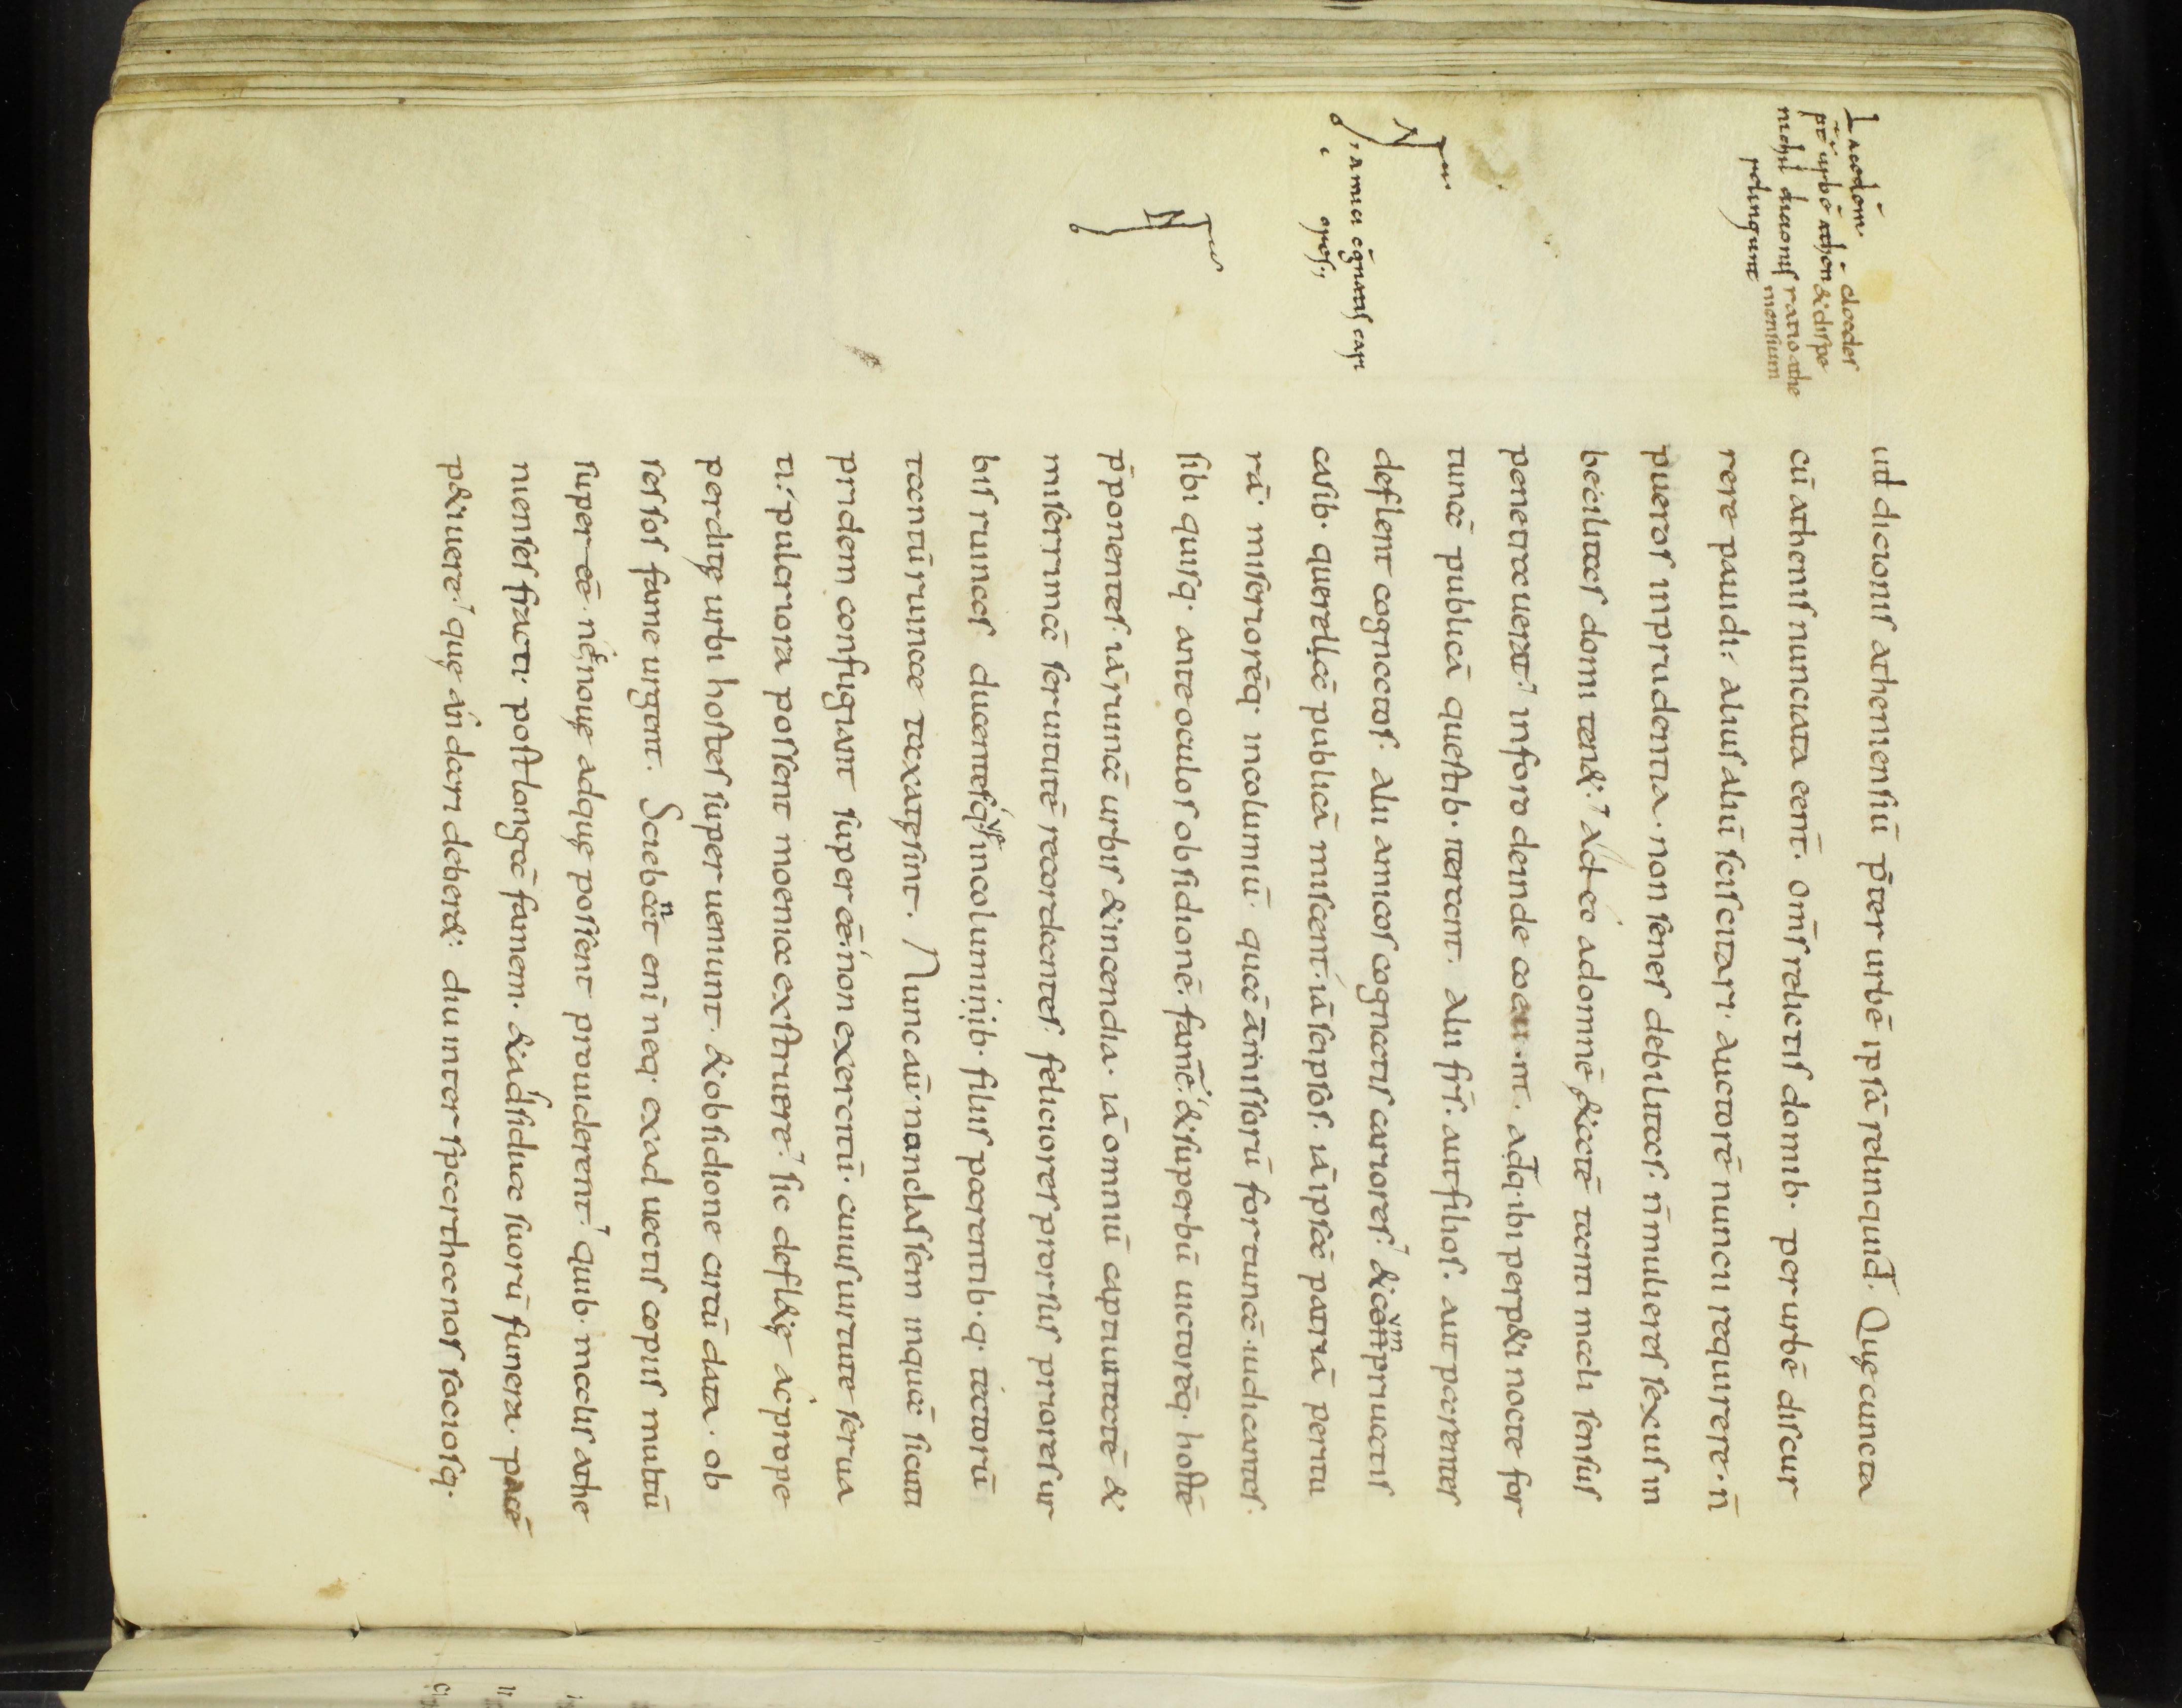 Lacedem̄. i. cledes
p̄t̄ urbē athen &dispe
nichil dicionis ratio athe
relinqunt mensium
N
amici c̄gnatis cari
ores;
N
uttdicionis atheniensiū p̄ter urbē ipsā relinquid. Quę cuncta
cū athenis nunciata eent̄. om̄s relictis domib· per urbē discur
rere pauidi· alius aliū sciscitari· auctorē nuncii requirere· n̄
pueros inprudentia· non senes debilitas· n̄ mulieres sexus in
becillitas domi ten&· adeo ad omnē &atē tanti mali sensus
penetrauerat· in foro deinde coeunt· adq· ibi perp&i nocte for
tunā publicā questib· iterant. alii frs̄. aut filios. aut parentes
deflent cognatos. alii amicos cognatis cariores· &cum priuatis
casib· querellā publicā miscent· iā seipsos. iā ipsā patriā peritu
rā· miserioreq· incolumiū· quā amissorū fortunā iudicantes·
sibi quisq· ante oculos obsidionē· famē· &superbū uictorēq· hostē
p̄ponentes· iā ruinā urbis &incendia· iā omniū captiuitatē &
miserrimā seruitutē recordantes· feliciores prorsus priores ur
bis ruinas ducentesq· incoluminib· filiis parentib·q· tectorū
tantū ruina taxatęsint. Nunc aū· nanclassem in quā sicuti
pridem confugiant super ēē· non exercitū· cuius uirtute serua
ti· pulcriora possent moenia exstruere· sic defl&ę ac prope
perditę urbi hostes superueniunt· &obsidione circū data· ob
sessos fame urgent. Sciebant enī neq· ex ad uectis copiis multū
super ēē· nec nouę adquę possent prouiderent· quib· malis athe
nienses fracti· post longā famem· &adsidua suorū funera· pacē
p&iuere· quę an dari deber&· diu inter sparthanos sociosq·